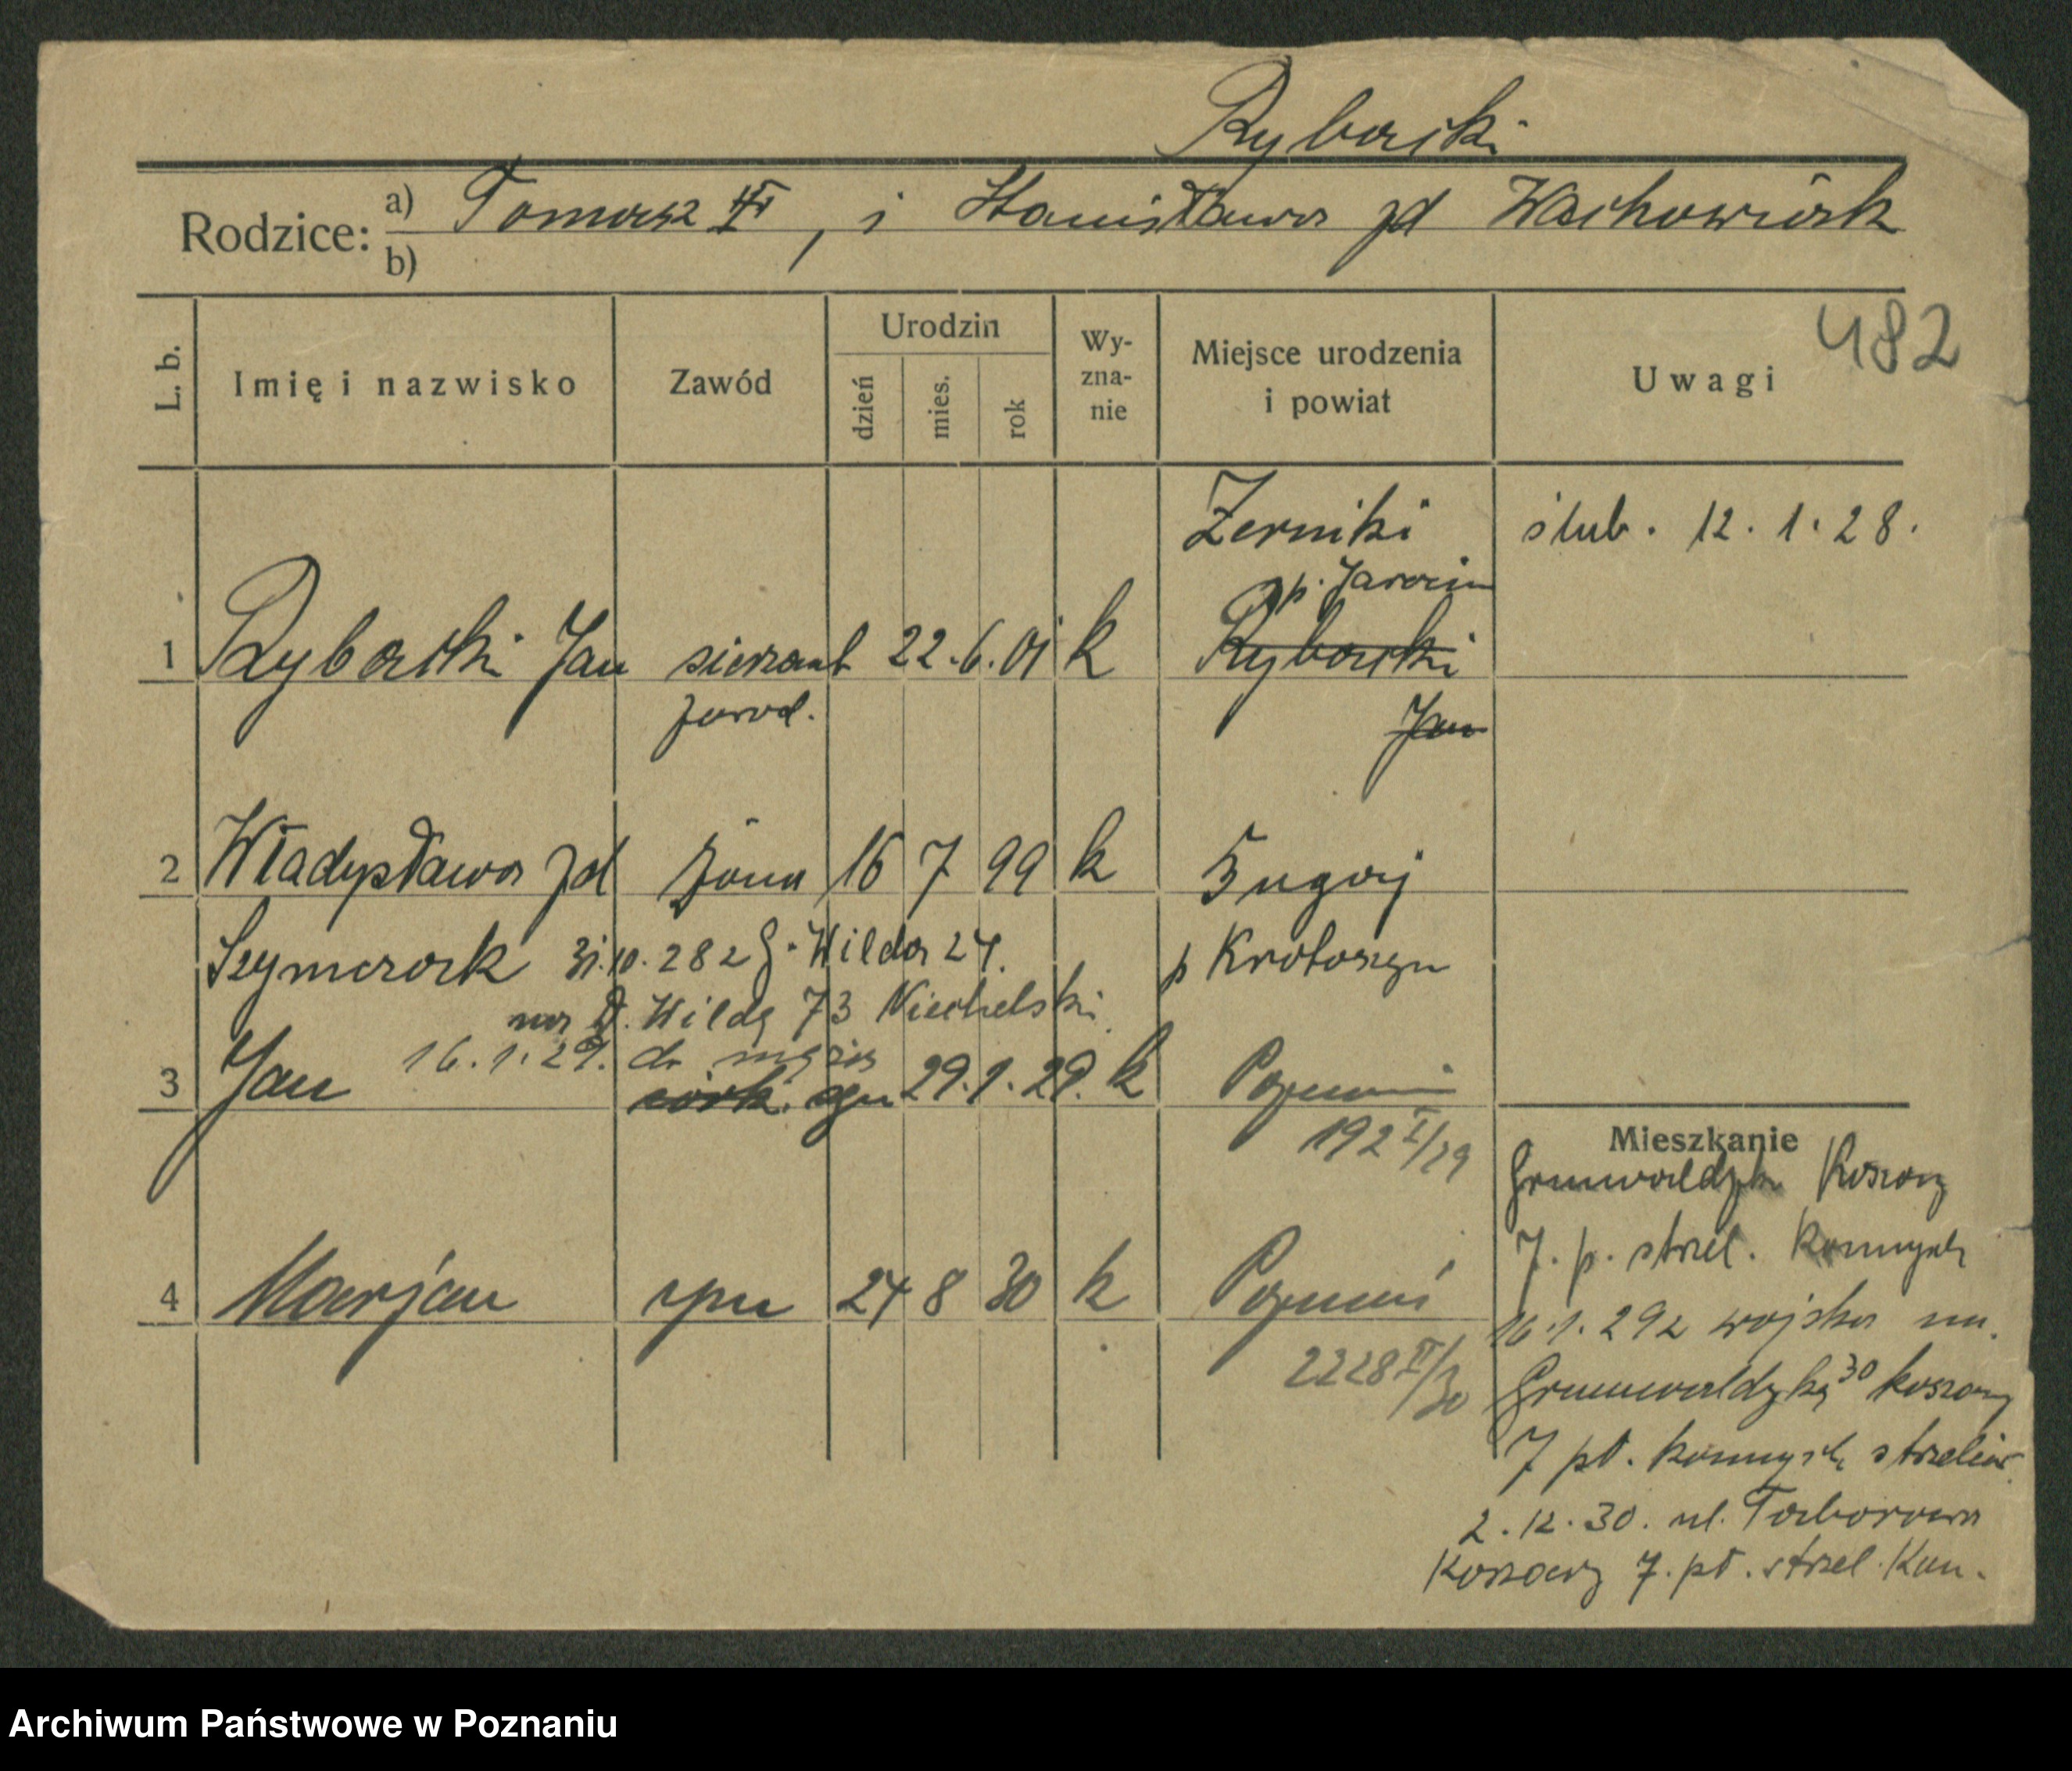 Rybacki
Rodzice: a) Tomasz II, i Stanisława zd Wachowiak
b)
482
L. b. Imię i nazwisko Zawód Urodzin dzień mies. rok Wy-zna-nie Miejsce urodzenia i powiat Uwagi
Zerniki ślub. 12.1.28.
p. Jarocin
1 Rybacki Jan sierżant 22.6.01 k Rybacki
zawod. Jan
2 Władysława zd żona 16 7 99 k
Szymczak 31.10.28 z G. Wilda 24. p Krotoszyn
na D. Wildę 73 Niechelski
16.1.29. do męża
3 Jan córk. syn 29.1.29. k Poznań
192 I/29
Mieszkanie
Grunwaldzka Koszary
7. p. strzel. Konnych
4 Marjan syn 24 8 30 k Poznań
2228 II/30
16.1.29 z wojska na
Grunwaldzką 30 koszary
7 pł. konnych strzelców
2.12.30. ul. Taborowa
Koszary 7. pł. strzel. Kon.
Archiwum Państwowe w Poznaniu